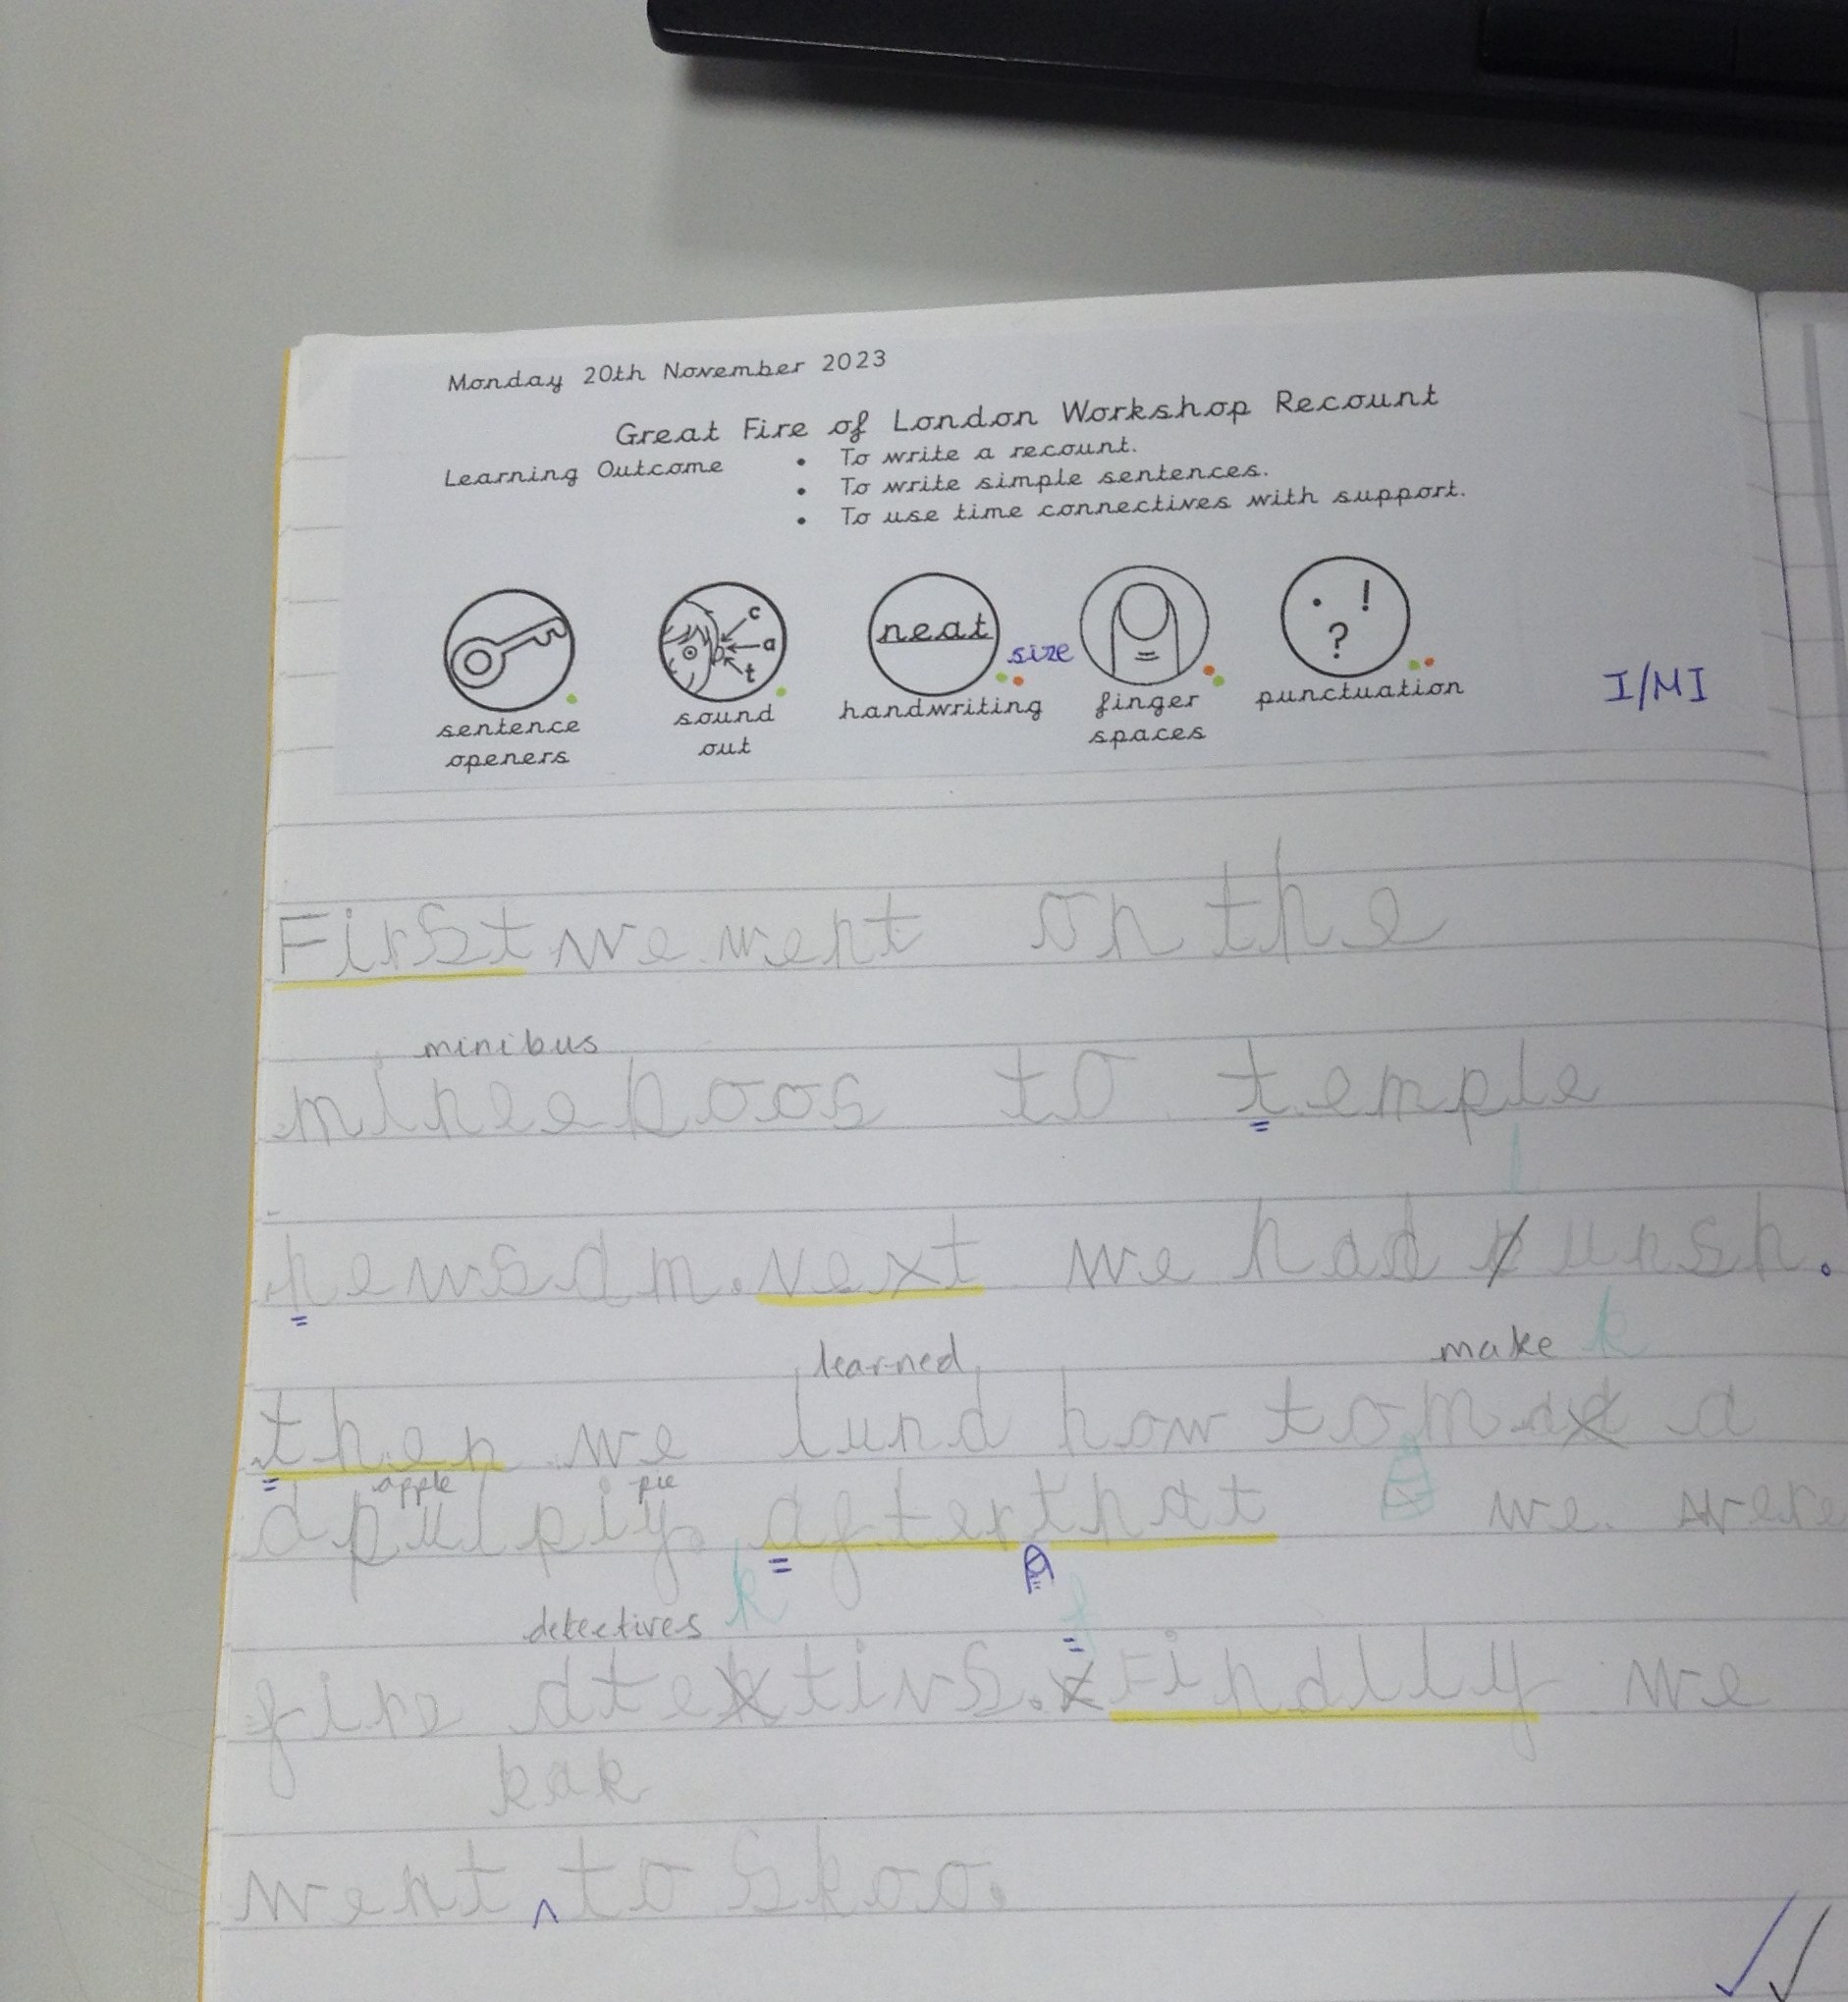 Monday 20th November 2023
Great Fire of London Workshop Recount
Learning Outcome
• To write a recount.
• To write simple sentences.
• To use time connectives with support.
c
a
t
neat
size
. !
?
sentence openers
sound out
handwriting
finger spaces
punctuation
I/MI
First we went on the
minibus
mineeboos to temple
l
newsam. next we had unsh.
learned make k
then we lund how to ma a
apple pie
apulpiy. afterthat we were
detectives k f
fire dtetivs. Finally we
bak
went ^ to skoo.